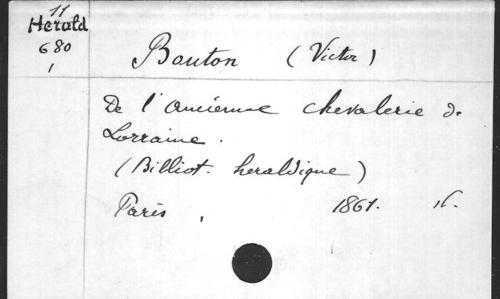 11
Herald
680
1
Bouton (Victor)
De l'ancienne chevalerie de
Lorraine.
(Billiot. heraldique)
Paris, 1861. 16.